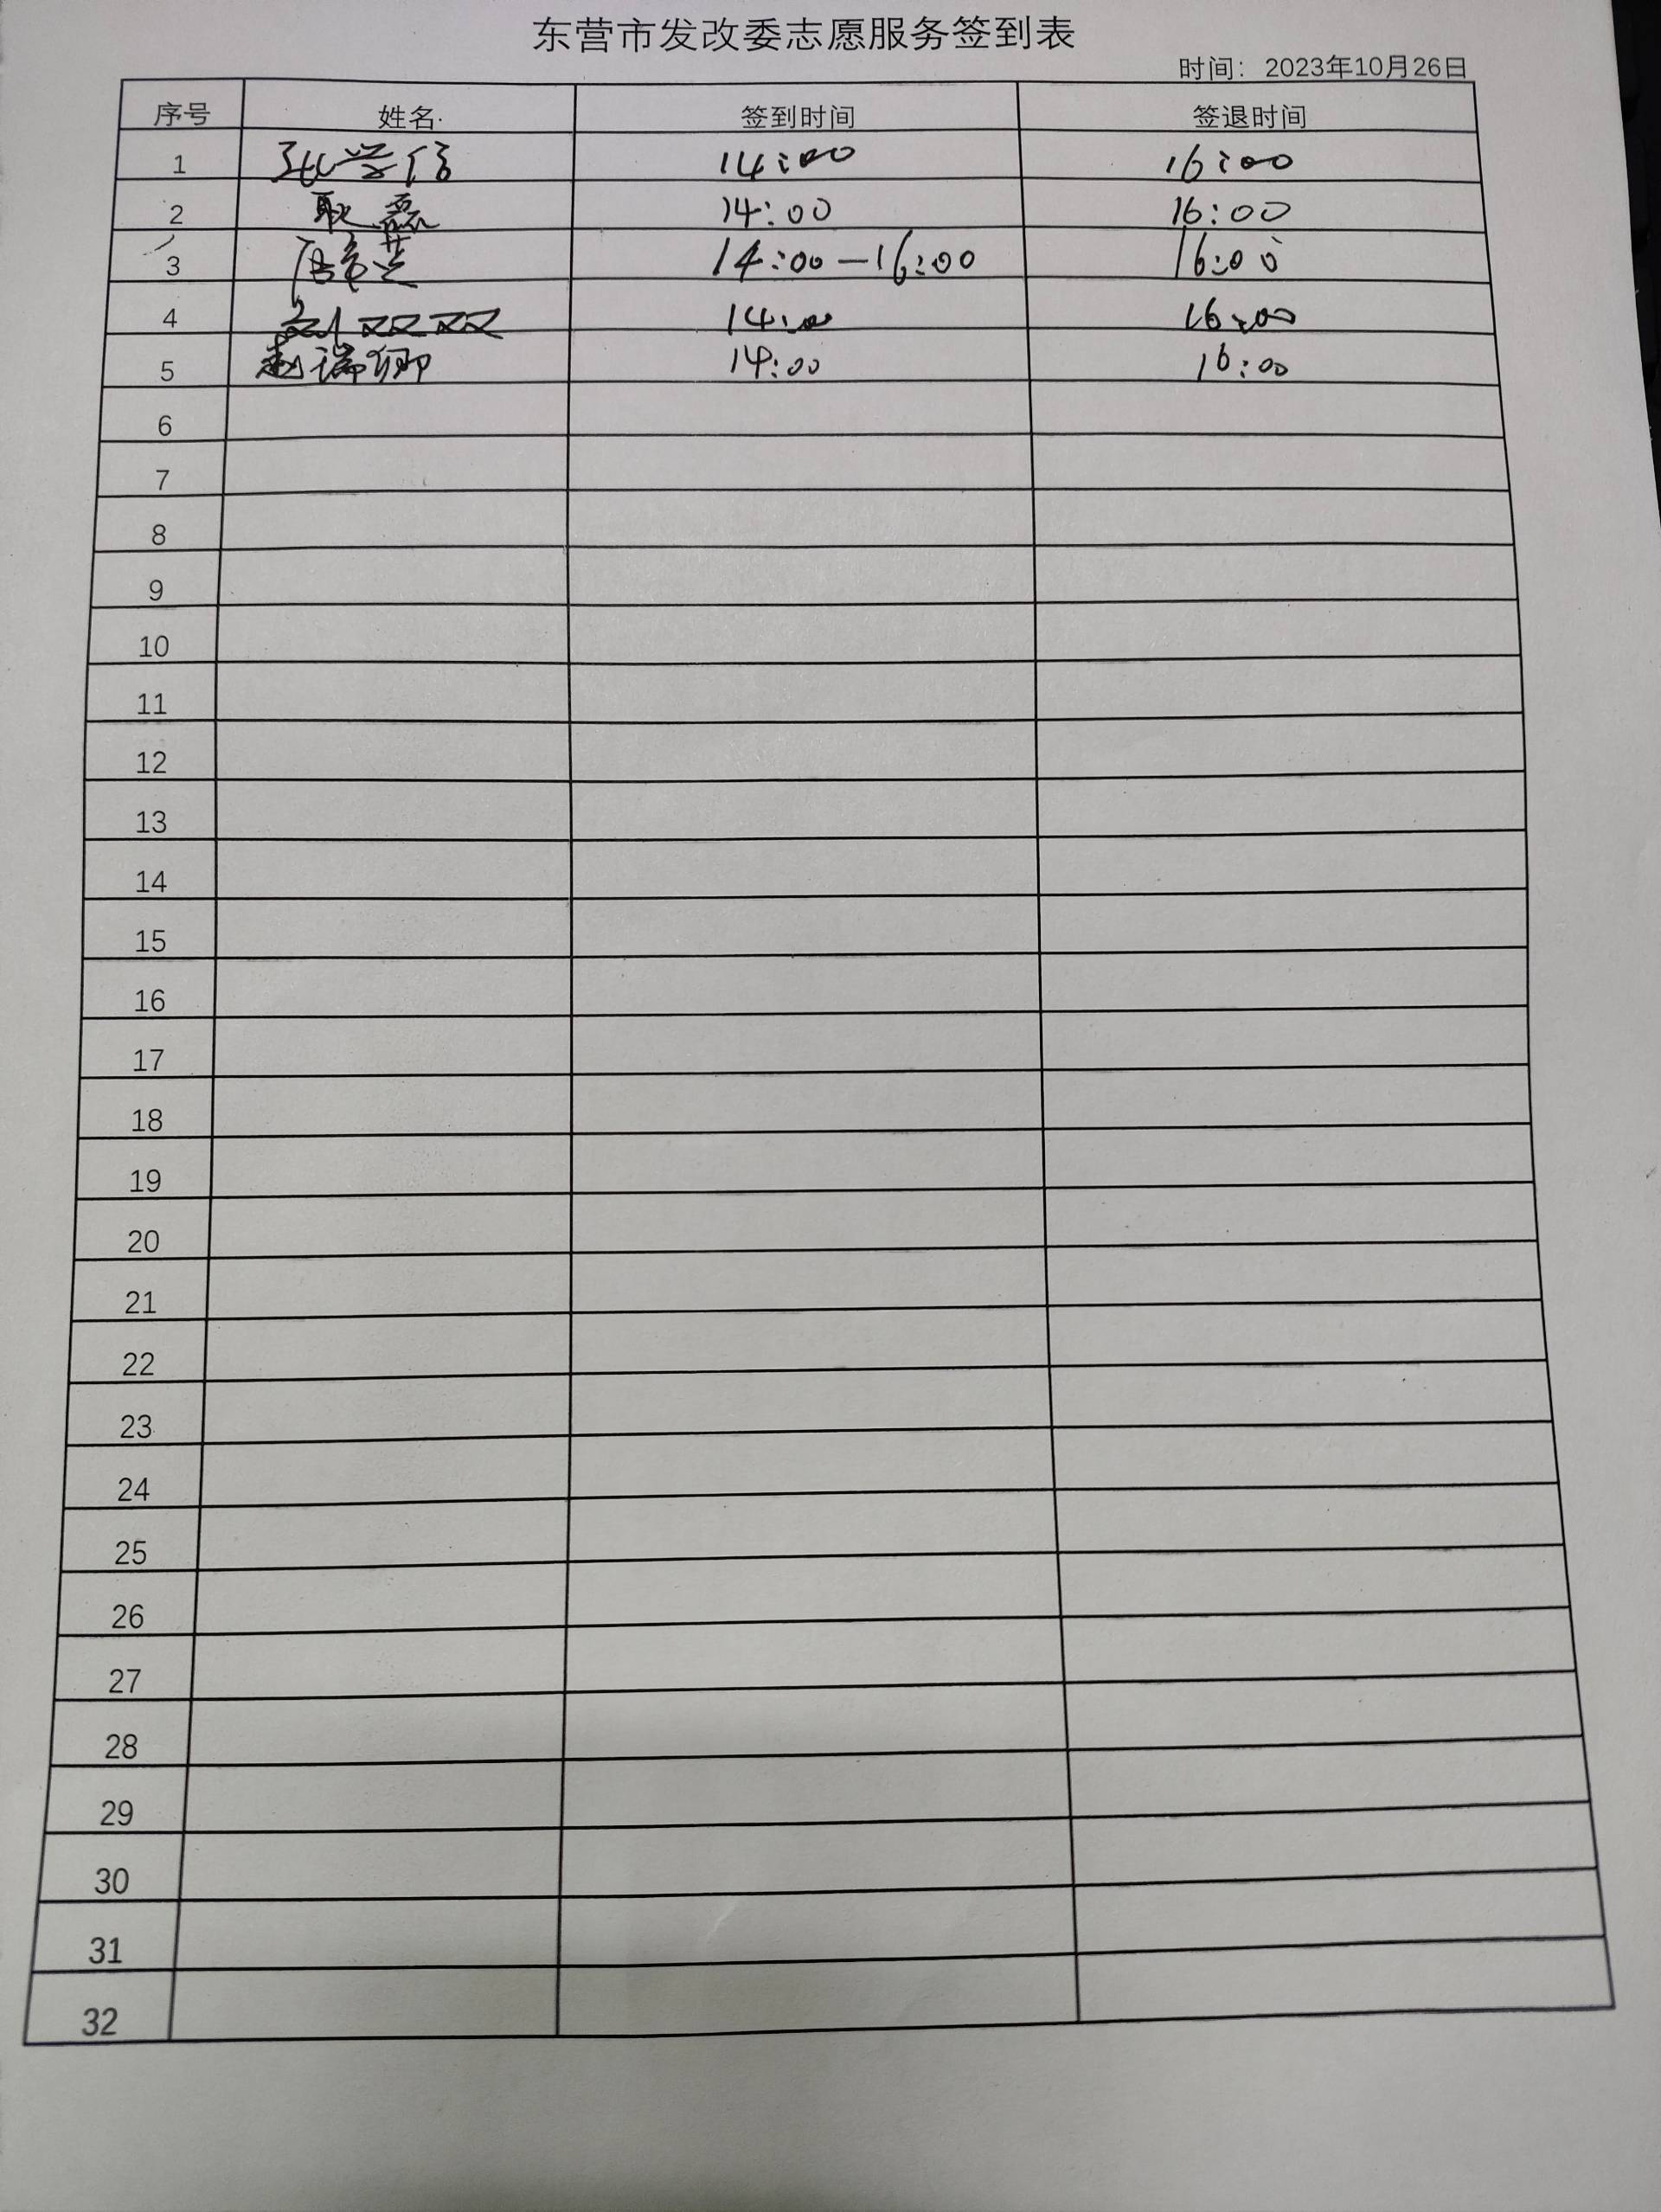 东营市发改委志愿服务签到表
时间：2023年10月26日
序号 姓名 签到时间 签退时间
1 张学信 14:00 16:00
2 耿磊 14:00 16:00
3 14:00—16:00 16:00
4 刘双双 14:00 16:00
5 赵瑞卿 14:00 16:00
6
7
8
9
10
11
12
13
14
15
16
17
18
19
20
21
22
23
24
25
26
27
28
29
30
31
32